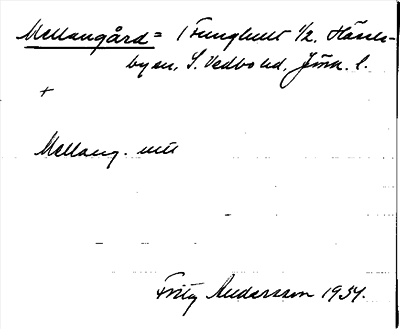 Mellangård = 1 Trunghult 1/2. Hässle-
byen, S. Vedbo hd, Jönk. l.
+
Mellang. mtl
Fritz Andersson 1934.